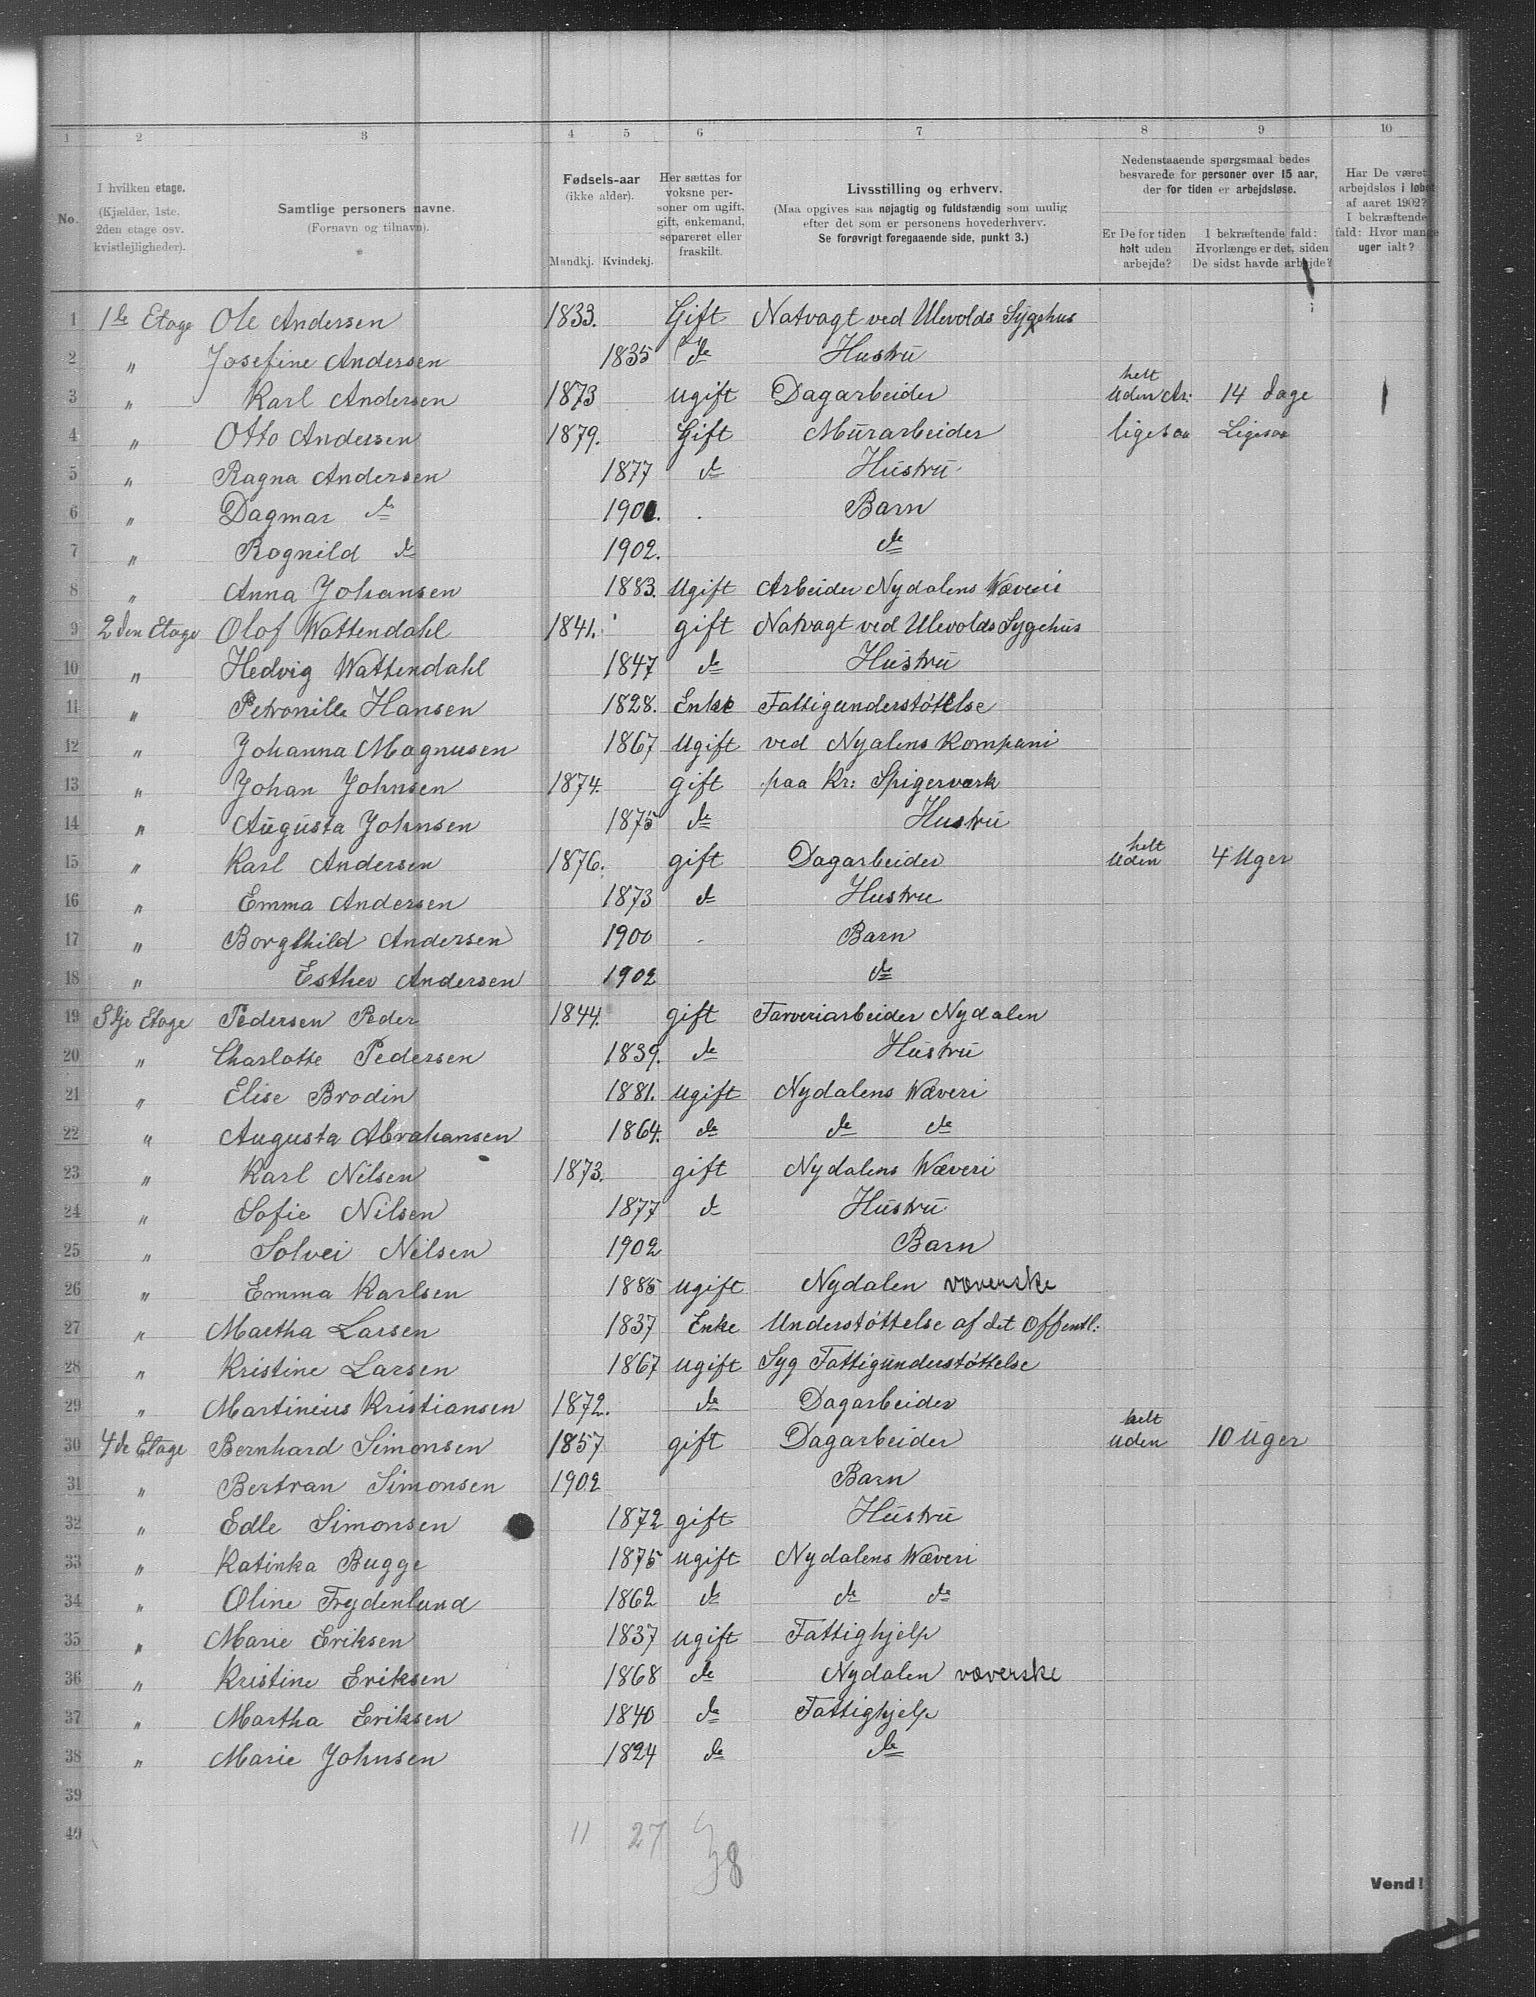 1 2 3 4 5 6 7 8 9 10
No.
I hvilken etage.
(Kjælder, 1ste.
2den etage osv.
kvistlejligheder).
Samtlige personers navne.
(Fornavn og tilnavn).
Fødsels-aar
(ikke alder).
Mandkj. Kvindekj.
Her sættes for
voksne per-
soner om ugift,
gift, enkemand,
separeret eller
fraskilt.
Livsstilling og erhverv.
(Maa opgives saa nøjagtig og fuldstændig som mulig
efter det som er personens hovederhverv.
Se forøvrigt foregaaende side, punkt 3.)
Nedenstaaende spørgsmaal bedes
besvarede for personer over 15 aar,
der for tiden er arbejdsløse.
Er De for tiden
helt uden
arbejde?
I bekræftende fald:
Hvorlænge er det, siden
De sidst havde arbejde?
Har De været
arbejdsløs i løbet
af aaret 1902?
I bekræftende
fald: Hvor mange
uger ialt?
1 1ste Etage Ole Andersen 1833. Gift Natvagt ved Ulevolds Sygehus
2 " Josefine Andersen 1835 do Hustru
3 " Karl Andersen 1873 ugift Dagarbeider helt Uden Ar: 14 dage
4 " Otto Andersen 1879. Gift Murarbeider ligesaa Ligesaa
5 " Ragna Andersen 1877 do Hustru
6 " Dagmar do 1901. Barn
7 " Rognild do 1902. do
8 " Anna Johansen 1883. Ugift Arbeider Nydalens Wæveri
9 2den Etage Olof Wattendahl 1841. gift Natvagt ved Ulevolds Sygehus
10 " Hedvig Wattendahl 1847 do Hustru
11 " Petronille Hansen 1828. Enke Fattigunderstøttelse
12 " Johanna Magnusen 1867 Ugift ved Nyalens Kompani
13 " Johan Johnsen 1874. gift paa Kr: Spigerværk
14 " Augusta Johnsen 1875 do Hustru
15 " Karl Andersen 1876. gift Dagarbeider helt Uden 4 Uger
16 " Emma Andersen 1873 do Hustru
17 " Borghild Andersen 1900 Barn
18 " Esther Andersen 1902 do
19 3dje Etage Pedersen Peder 1844. gift Farveriarbeider Nydalen
20 " Charlotte Pedersen 1839. do Hustru
21 " Elise Brodin 1881. ugift Nydalens Wæveri
22 " Augusta Abrahansen 1864. do do do
23 " Karl Nilsen 1873. gift Nydalens Wæveri
24 " Sofie Nilsen 1877 do Hustru
25 " Solvei Nilsen 1902 Barn
26 " Emma Karlsen 1885 ugift Nydalen væverske
27 " Martha Larsen 1837 Enke Understøttelse af det Offentl:
28 " Kristine Larsen 1867 ugift Syg Fattigunderstøttelse
29 " Martinius Kristiansen 1872. do Dagarbeider
30 4de Etage Bernhard Simonsen 1857 gift Dagarbeider helt uden 10 Uger
31 " Bertran Simonsen 1902 Barn
32 " Edle Simonsen 1872 gift Hustru
33 " Katinka Bugge 1875 ugift Nydalens Wæveri
34 " Oline Frydenlund 1862 do do do
35 " Marie Eriksen 1837 ugift Fattighjelp
36 " Kristine Eriksen 1868 do Nydalen væverske
37 " Martha Eriksen 1840 do Fattighjelp
38 " Marie Johnsen 1824 do do
39
40
11 27 38
Vend!